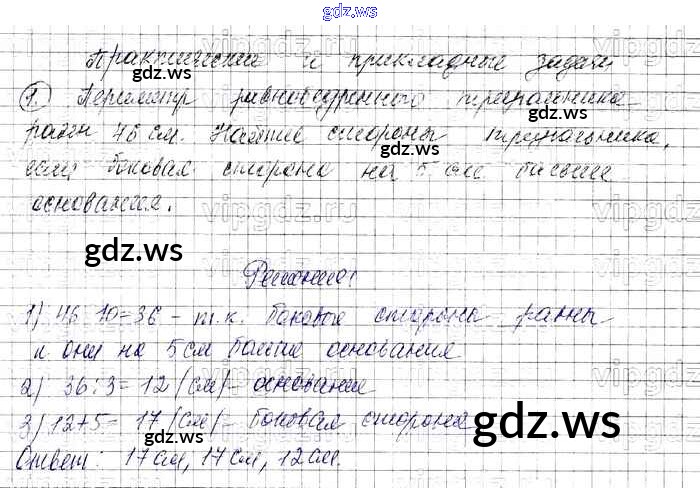 gdz.ws
Практические и прикладные задачи
gdz.ws
1. Периметр равнобедренного треугольника
равен 46 см. Найдите стороны треугольника,
gdz.ws
если боковая сторона на 5 см больше
основания.
gdz.ws
Решение:
1) 46-10=36 - т.к. боковые стороны равны
и они на 5 см больше основания
2) 36:3=12 (см) - основание
3) 12+5=17 (см) - боковая сторона
gdz.ws
gdz.ws
Ответ: 17 см, 17 см, 12 см.